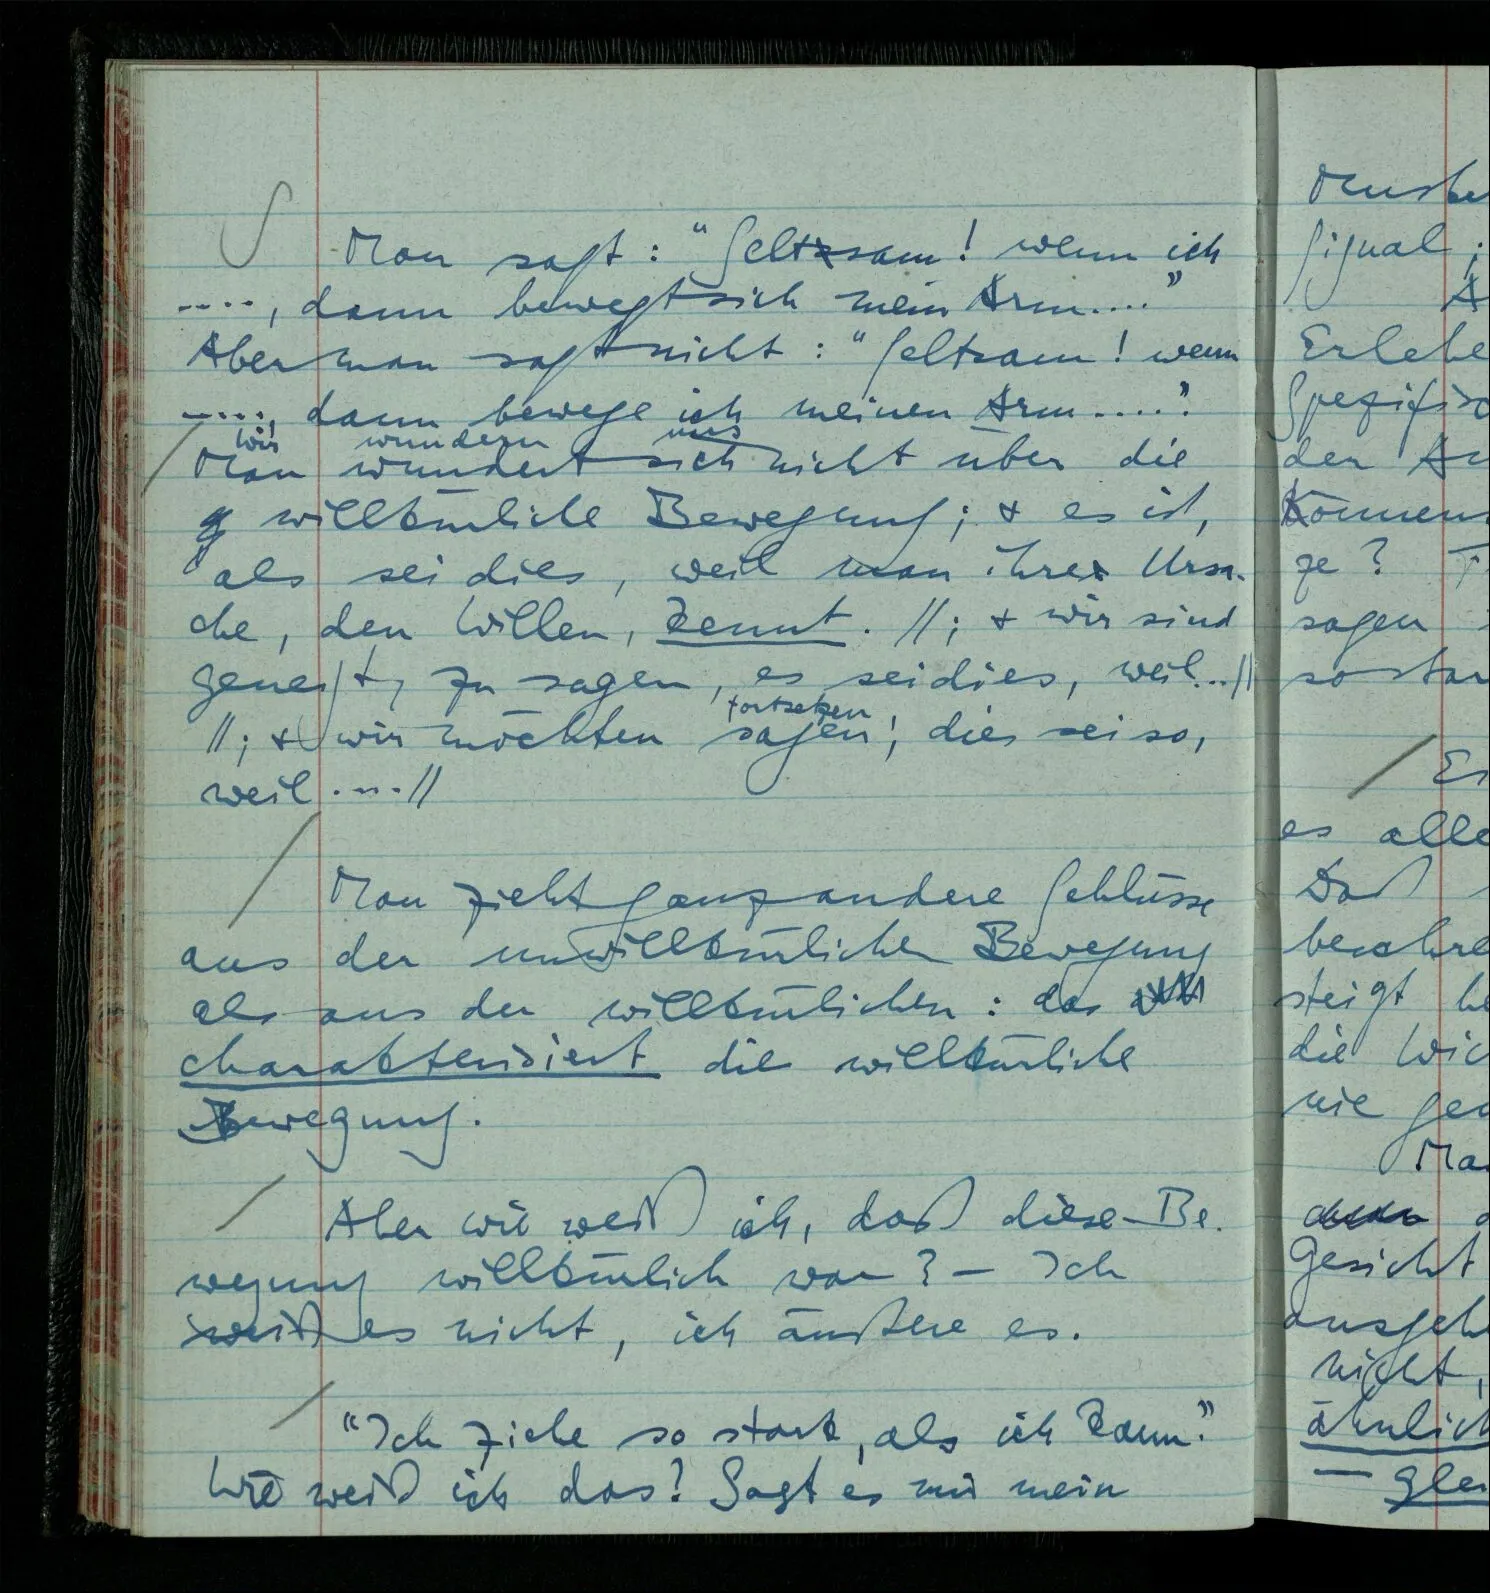 Man sagt: "Seltsam! wenn ich
...., dann bewegt sich mein Arm...."
Aber man sagt nicht: "Seltsam! wenn
....., dann bewege ich meinen Arm....".
wir wundern uns
Man wundert sich nicht über die
willkürliche Bewegung; & es ist,
als sei dies, weil man ihre Ursa-
che, den Willen, kennt. //; & wir sind
geneigt, zu sagen, es sei dies, weil...//
fortsetzen
//; & wir möchten sagen, dies sei so,
weil ....//
Man zieht ganz andere Schlüsse
aus der unwillkürlichen Bewegung
als aus der willkürlichen: das
charakterisiert die willkürliche
Bewegung.
Aber wie weiß ich, daß diese Be-
wegung willkürlich war? – Ich
weiß es nicht, ich äußere es.
"Ich ziehe so stark, als ich kann."
Wie weiß ich das? Sagt es mir mein
Signal;
Erlebe
Spezifisc
der
Können
ge?
sagen
so star
es alle
Daß
steigt
die
nie
Ma
Gesicht
ausgeh
nicht,
ähnlich
— glei